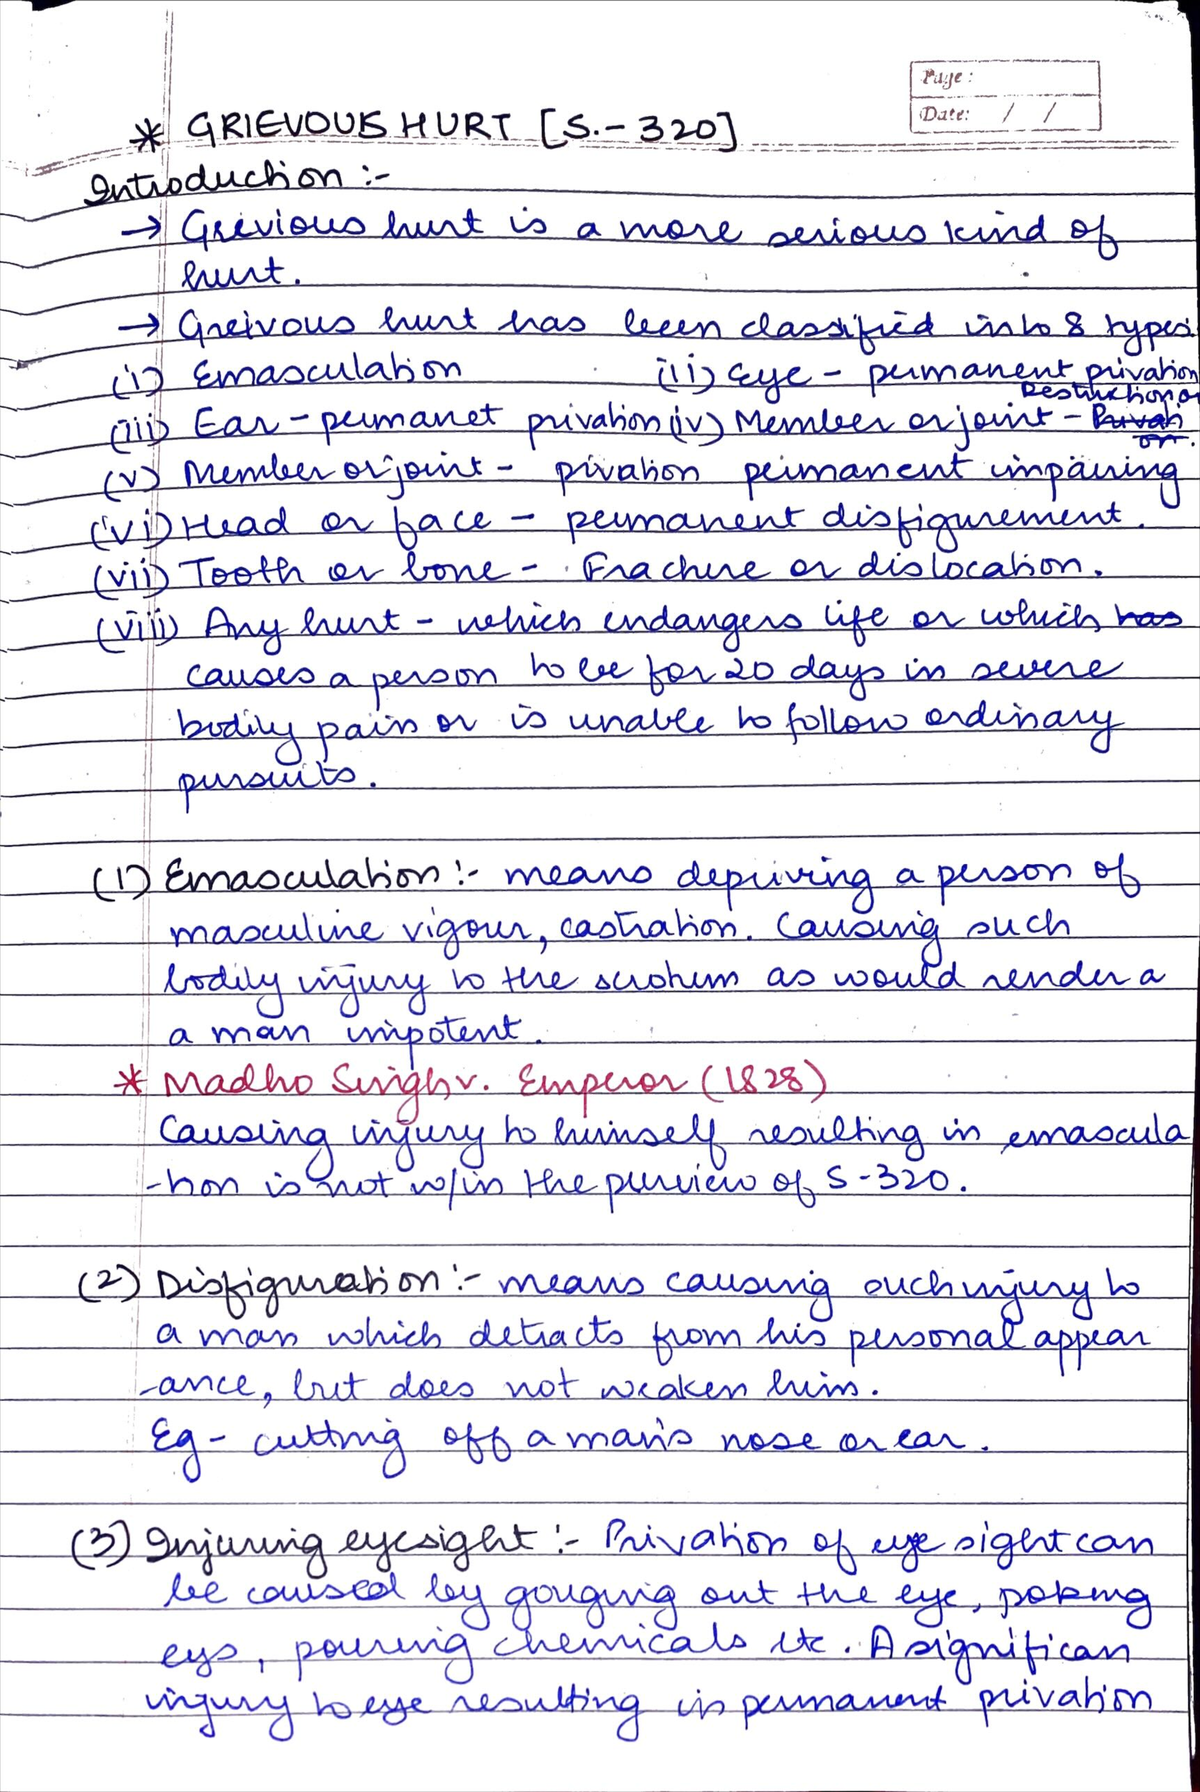 Page :
Date: / /
* GRIEVOUS HURT [S.-320]
Introduction :-
→ Grevious hurt is a more serious kind of
hurt.
→ Greivous hurt has been classified into 8 types:
(i) Emasculation (ii) Eye - permanent privation
(iii) Ear - permanet privation (iv) Member or joint - Destruction or Privation.
(v) Member or joint - pivation permanent impairing
(vi) Head or face - permanent disfigurement.
(vii) Tooth or bone - Fracture or dislocation.
(viii) Any hurt - which endangers life or which has
causes a person to be for 20 days in severe
bodily pain or is unable to follow ordinary
pursuits.
(1) Emasculation :- means depriving a person of
masculine vigour, castration. Causing such
bodily injury to the scrotum as would render a
a man impotent.
* Madho Singh v. Emperor (1828)
Causing injury to himself resulting in emascula
-tion is not w/in the purview of S-320.
(2) Disfiguration :- means causing such injury to
a man which detracts from his personal appear
-ance, but does not weaken him.
Eg - cutting off a man's nose or ear.
(3) Injuring eyesight :- Privation of eye sight can
be caused by gouging out the eye, poking
eys, pouring chemicals etc. A significan
injury to eye resulting in permanent privation